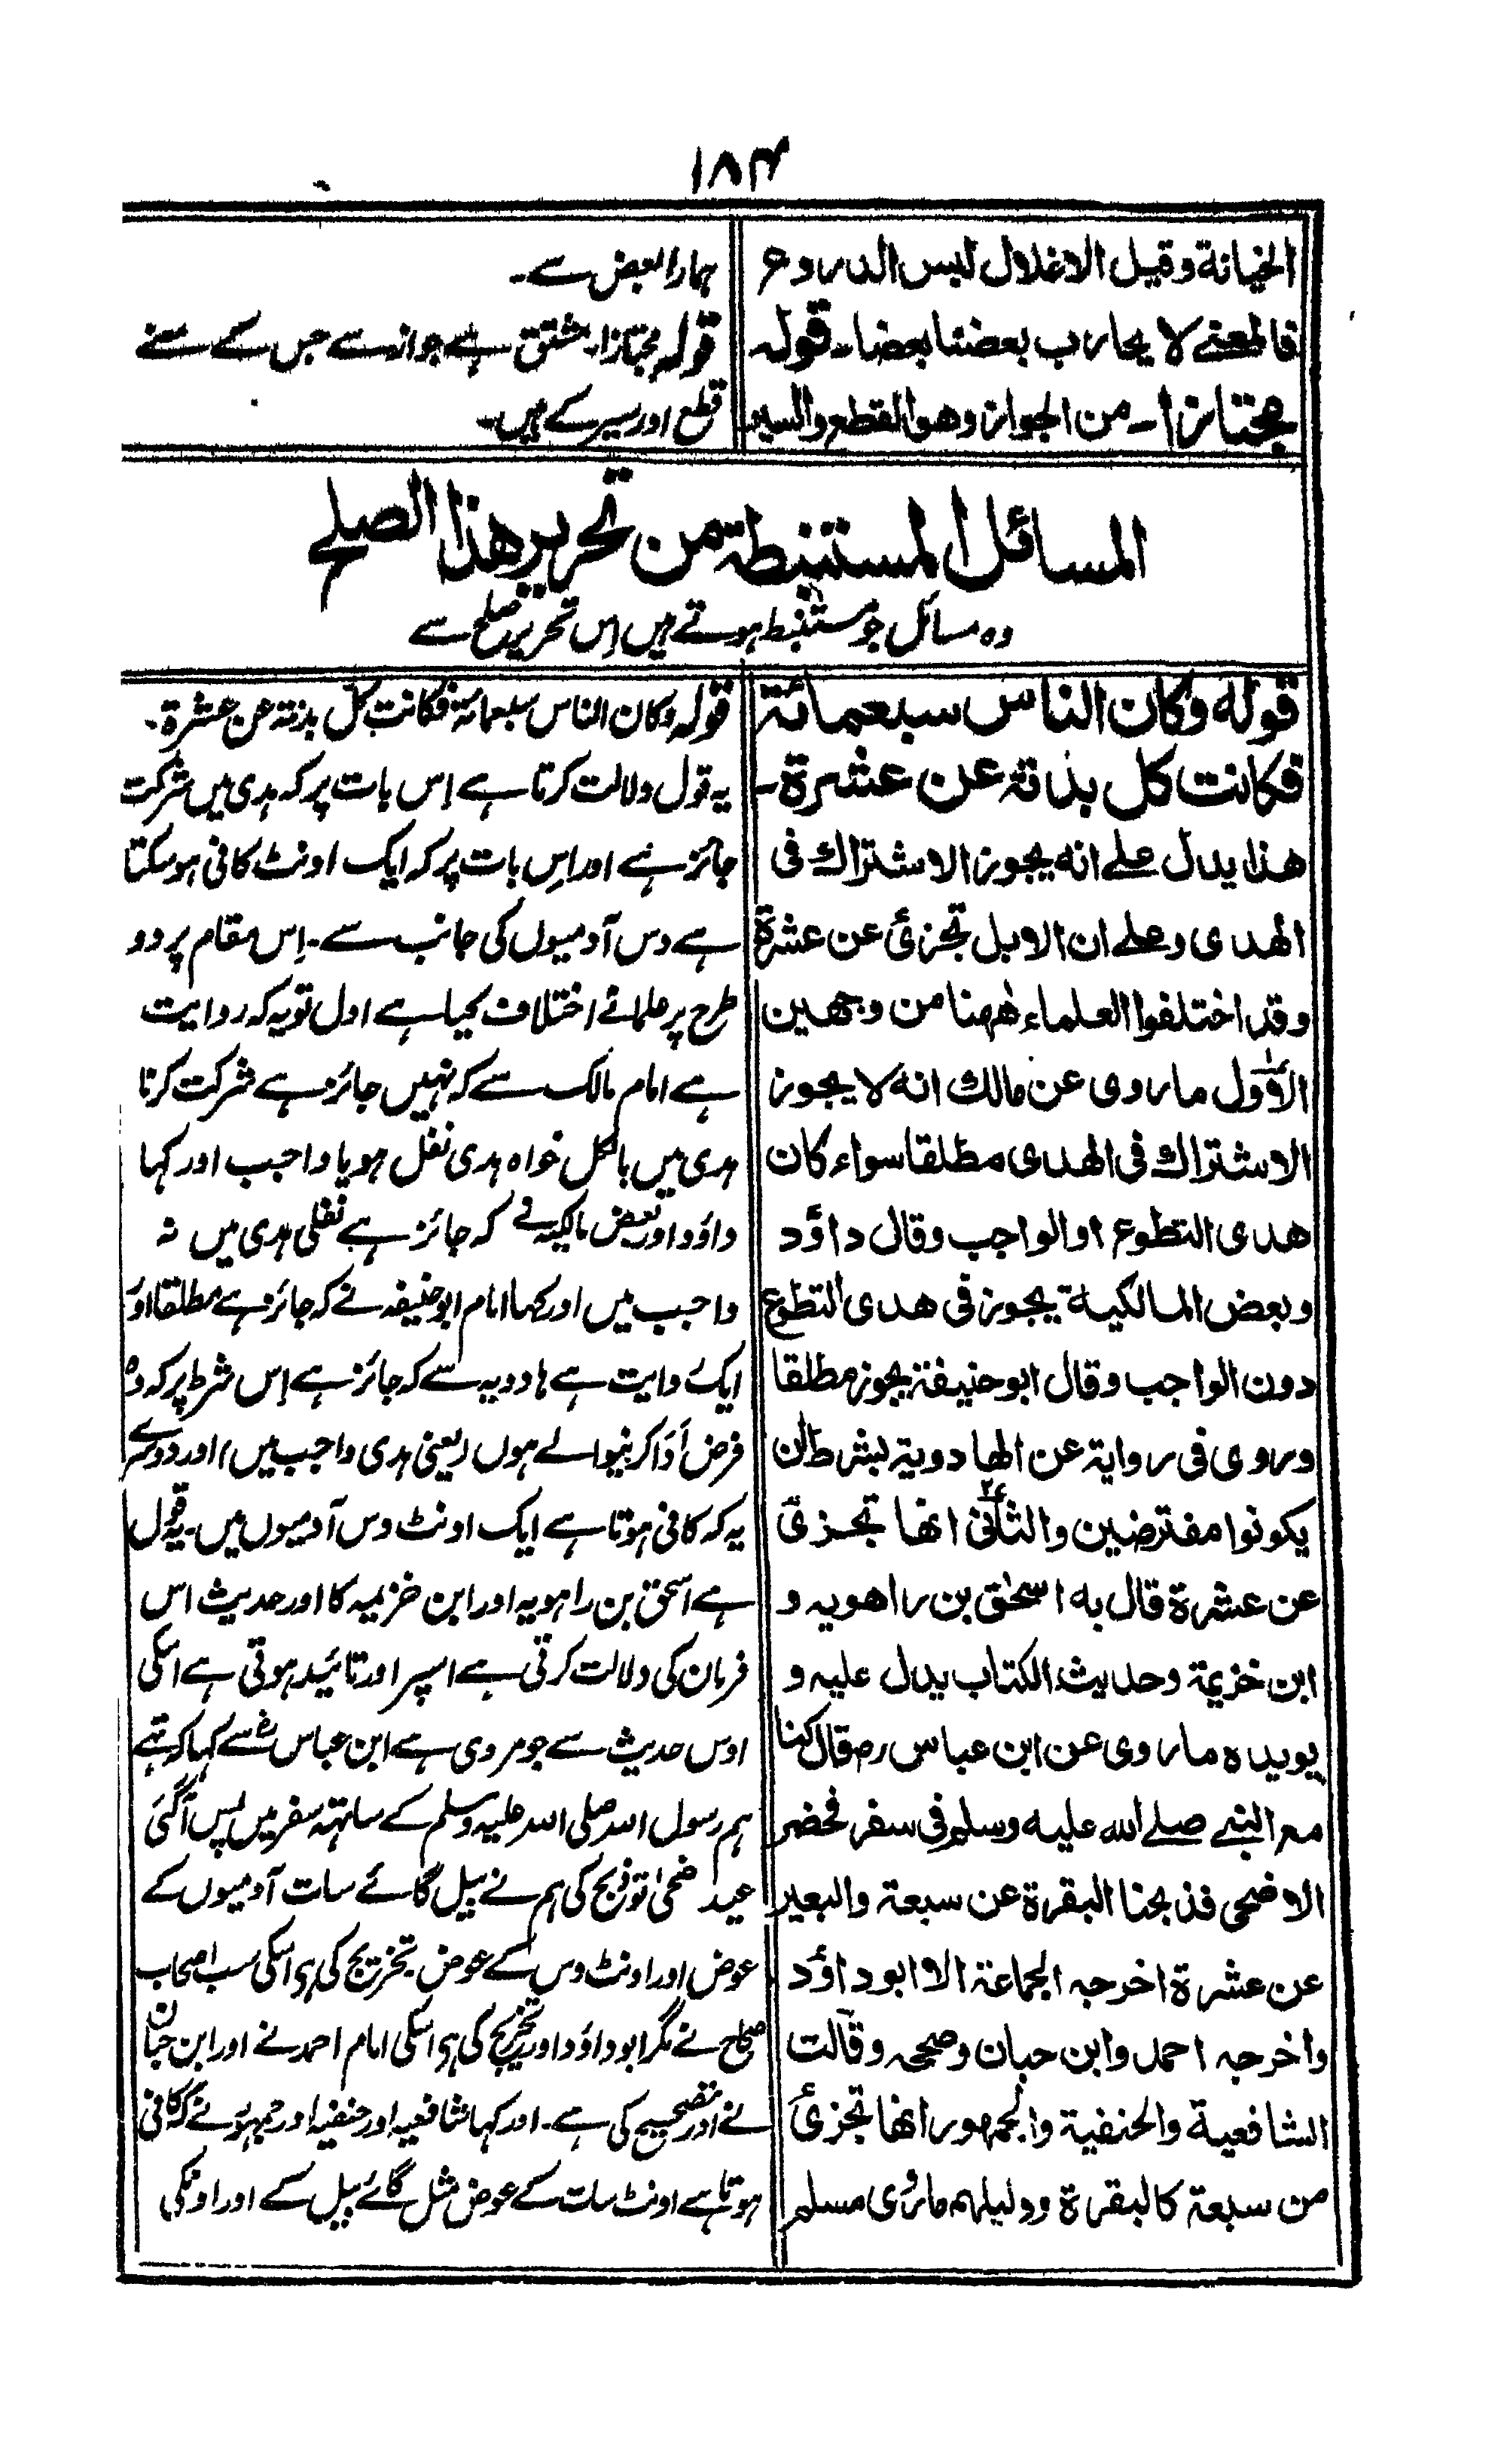 ۱۸۴
الخيانة وقيل الاغلال لبس الدروع
فالمعنے لا يحارب بعضنا بعضا۔ قوله
مجتازا۔ من الجواز وهو القطع والسير
ہمارا بعض سے۔
قولہ مجتازا۔ مشتق ہے جواز سے جس کے معنے
قطع اور سیر کے ہیں۔
المسائل المستنبطة من تحرير هذا الصلح
وہ مسائل جو مستنبط ہوتے ہیں اِس تحریر صلح سے
قوله وكان الناس سبعمائة
فكانت كل بدنة عن عشرة۔
هذا يدل علے انه يجوز الاشتراك فى
الهدى وعلے ان الابل تجزئ عن عشرة
وقد اختلفوا العلماء ههنا من وجهين
الاول ما روى عن مالك انه لا يجوز
الاشتراك فى الهدى مطلقا سواء كان
هدى التطوع او الواجب وقال داؤد
وبعض المالكية يجوز فى هدى التطوع
دون الواجب وقال ابو حنيفة يجوز مطلقا
وروى فى رواية عن الهادوية بشرط ان
يكونوا مفترضين والثانى انها تجزئ
عن عشرة قال به اسحٰق بن راهويه و
ابن خزيمة وحديث الكتاب يدل عليه و
يويده ما روى عن ابن عباس رض قال كنا
مع النبے صلے الله عليه وسلم فى سفر فحضر
الاضحى فذبحنا البقرة عن سبعة والبعير
عن عشرة اخرجه الجماعة الا ابو داؤد
واخرجه احمد وابن حبان وصححه وقالت
الشافعية والحنفية والجمهور انها تجزئ
من سبعة كالبقرة ودليلهم ما روى مسلم
قولہ وکان الناس سبعمائۃ فکانت کل بدنۃ عن عشرۃ۔
یہ قول دلالت کرتا ہے اِس بات پر کہ ہدی میں شرکت
جائز ہے اور اِس بات پر کہ ایک اونٹ کافی ہو سکتا
ہے دس آدمیوں کی جانب سے۔ اِس مقام پر دو
طرح پر علمائے اختلاف کیا ہے اول تو یہ کہ روایت
ہے امام مالک سے کہ نہیں جائز ہے شرکت کرنا
ہدی میں بالکل خواہ ہدی نفل ہو یا واجب اور کہا
داؤد اور بعض مالکیہ نے کہ جائز ہے نفلی ہدی میں نہ
واجب میں اور کہا امام ابو حنیفہ نے کہ جائز ہے مطلقا اور
ایک روایت ہے ہادویہ سے کہ جائز ہے اِس شرط پر کہ وہ
فرض اَدَا کرنیوالے ہوں (یعنی ہدی واجب میں) اور دوسرے
یہ کہ کافی ہوتا ہے ایک اونٹ دس آدمیوں میں۔ یہ قول
ہے اسحٰق بن راہویہ اور ابن خزیمہ کا اور حدیث اس
فرمان کی دلالت کرتی ہے اسپر اور تائید ہوتی ہے اسکی
اوس حدیث سے جو مروی ہے ابن عباس رض سے کہا کہ تھے
ہم رسول اللہ صلی اللہ علیہ وسلم کے ساتھ سفر میں پس آگئی
عید ضحیٰ تو ذبح کی ہم نے بیل گائے سات آدمیوں کے
عوض اور اونٹ دس کے عوض۔ تخریج کی ہی اسکی سب اصحاب
صحاح نے مگر ابو داؤد اور تخریج کی ہی اسکی امام احمد نے اور ابن حبان
نے اور تصحیح کی ہے۔ اور کہا شافعیہ اور حنفیہ اور جمہور نے کہ کافی
ہوتا ہے اونٹ سات کے عوض مثل گائے بیل کے اور اونکی